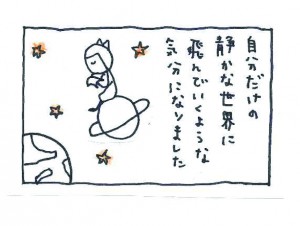 自分だけの
静かな世界に
飛んでいくような
気分になりました